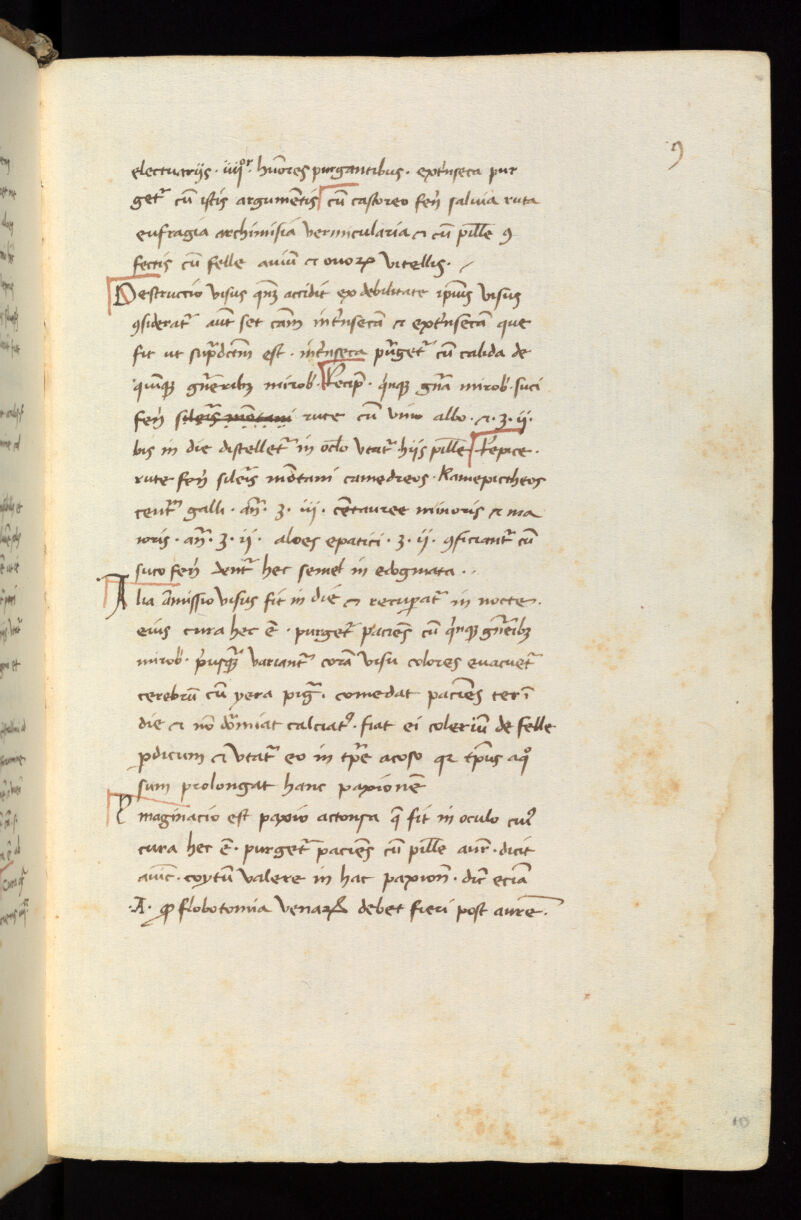 9
electuariis · iiijor · hūores purgantibus · exti̾nseca pur
get᷑ cū istis argumētis cū castoreo feñ salvia ruta
eufragia archimisia vermicularia ⁊ cū pill̄e ꝯ
fectis cū felle aviū ⁊ ovoꝝ vitellis · /
Destructio visus qn̄ accidit ex debilitate ip̄ius visus
ꝯsiderat᷑ aūt set cām int̾nsecā ⁊ ext̾nsecā que
fit ut sup̄dictm̄ est · int̾nseca pu̾get᷑ cū calida de
quinqꝫ gn̄eribꝫ mirob · Recip̄ · q̾nqꝫ gn̄a mirob · suci
feñ rute cū vino albo · ⁊ · ʒ · ii ·
bis in die distellet᷑ in oc̄lo vtat᷑ hijs pill̄e Repice ·
rute feñ sileris mōtani camedreos · Kamepictheos
cent᷑ galli · an̄ · ʒ · iii · cētauree minoris ⁊ ma
ioris · an̄ · ʒ · ii · aloes epatici · ʒ · ii · ꝯficiant᷑ cū
suco feñ dent᷑ hec semel in edogmata · ·
Alia āmissio visus fit in die ⁊ recuperat᷑ in nocte ·
eius cura hec ē · purget᷑ paciēs cū q̾nqꝫ gn̄eibꝫ
mirob · p̾usqꝫ variant᷑ corā visu colores evacuet᷑
cerebrū cū yera pig̾ · comedat paciēs ter ī
die ⁊ nō dormiat calciatꝰ · fiat ei coleriū de felle
ꝑdicum ⁊ vtat᷑ eo in tp̄e acoso qr tp̄us aq°
sum prolongat hanc paxionē
Ymaginacio est paxio actonsa q̄ fit in oculo cuiꝰ
cura hec ē · purget᷑ paciēs cū pill̄e aur̄ · dicit
avic̄ · coytū valere in hac paxion̄ · dic̄ eciā
· A · ꝙ flobotomia venaꝝ debet fieri post aurē ·
10